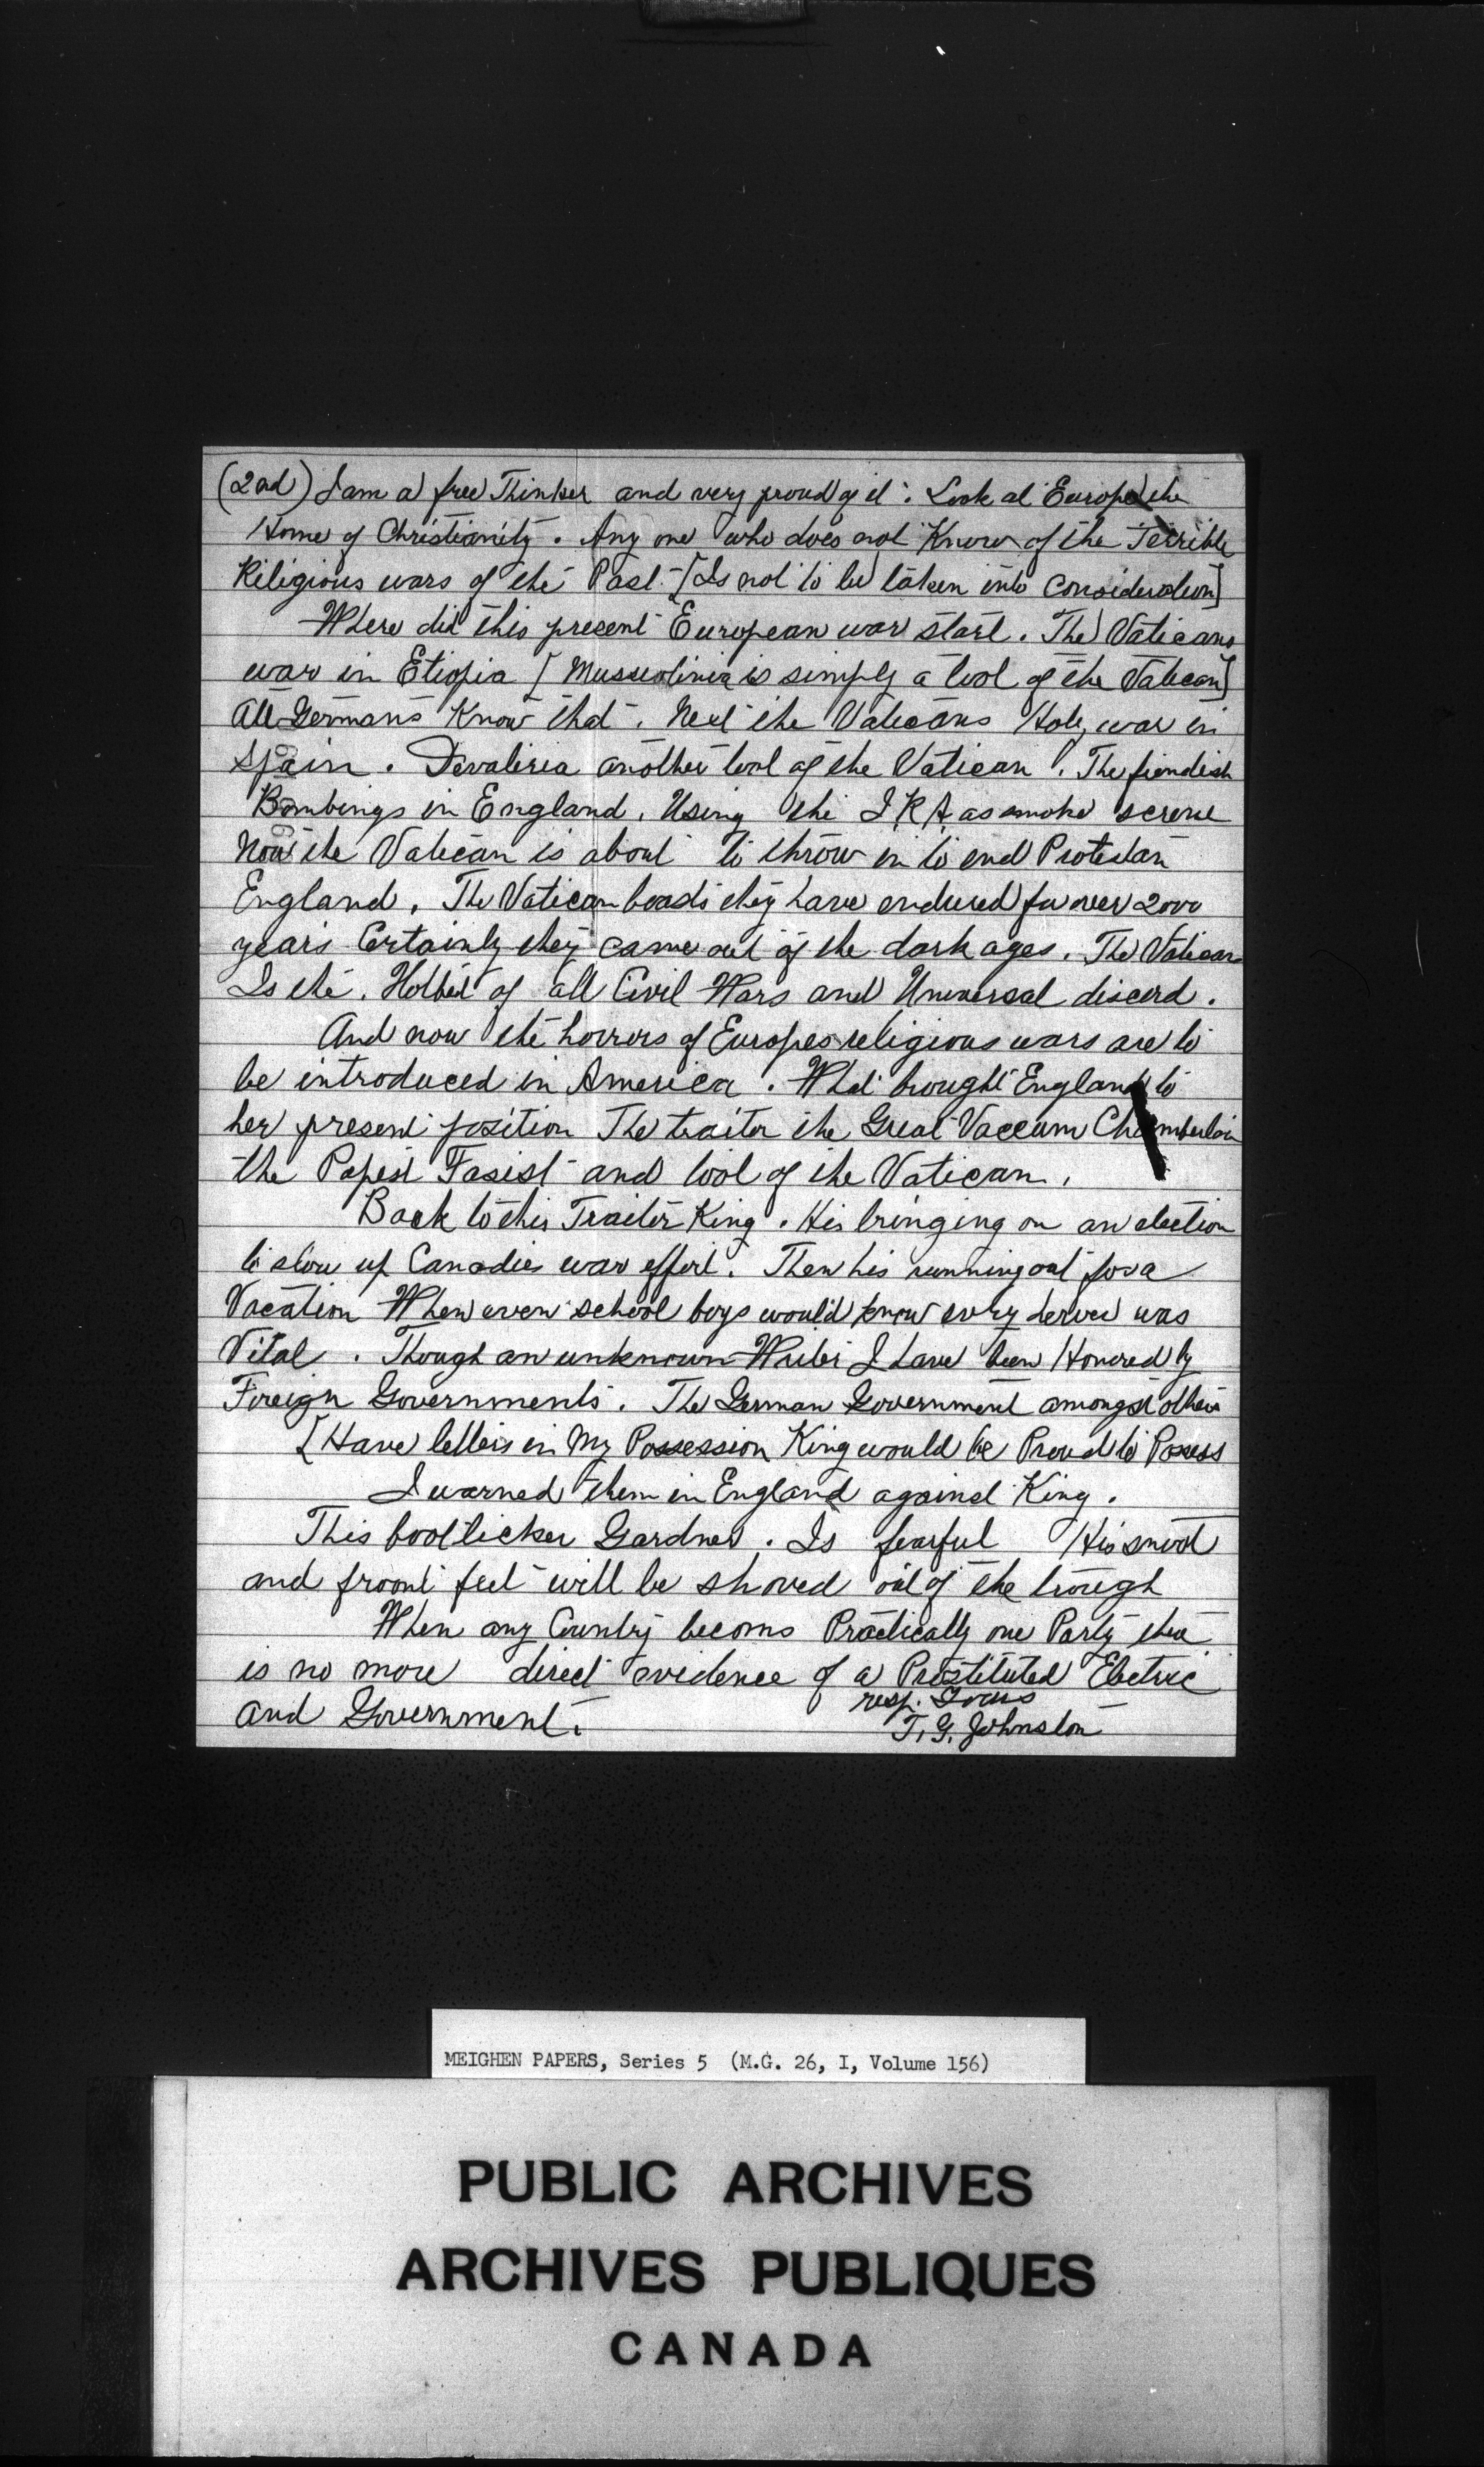 (2nd) I am a free Thinker and very proud of it. Look at Europe the
Home of Christianity. Any one who does not Know of the Terrible
Religious wars of the Past [Is not to be taken into Consideration]
Where did this present European war start. The Vaticans
war in Etiopia [Mussolinia is simply a tool of the Vatican]
All Germans Know that. Next the Vaticans Holy war in
Spain. Devaliria another tool of the Vatican. The fiendish
Bombings in England. Using the I R A as smoke screne
Now the Vatican is about to throw in to end Protestan
England. The Vatican boasts they have endured for over 2000
years Certainly they came out of the dark ages. The Vatican
Is the. Hotbet of all Civil Wars and Universal discord.
And now the horrors of Europes religious wars are to
be introduced in America. What brought England to
her present position The traitor the Great Vaccum Chamberlain
the Papist Fasist and tool of the Vatican.
Back to this Traitor King. His bringing on an election
to slow up Canadies war effort. Then his running out for a
Vacation When even school boys would know every
was
Vital. Though an unknown Writer I have been Honored by
Foreign Governments. The German Government amongst others
[Have letters in My Possession King would be Proud to Posess
I warned them in England against King.
This bootlicker Gardner. Is fearful His snoot
and froont feet will be shoved out of the trough
When any Country becoms Practically one Party there
is no more direct evidence of a Prostituted Electric
and Government.
resp. Yours
T. G. Johnston
MEIGHEN PAPERS, Series 5 (M.G. 26, I, Volume 156)
PUBLIC ARCHIVES
ARCHIVES PUBLIQUES
CANADA